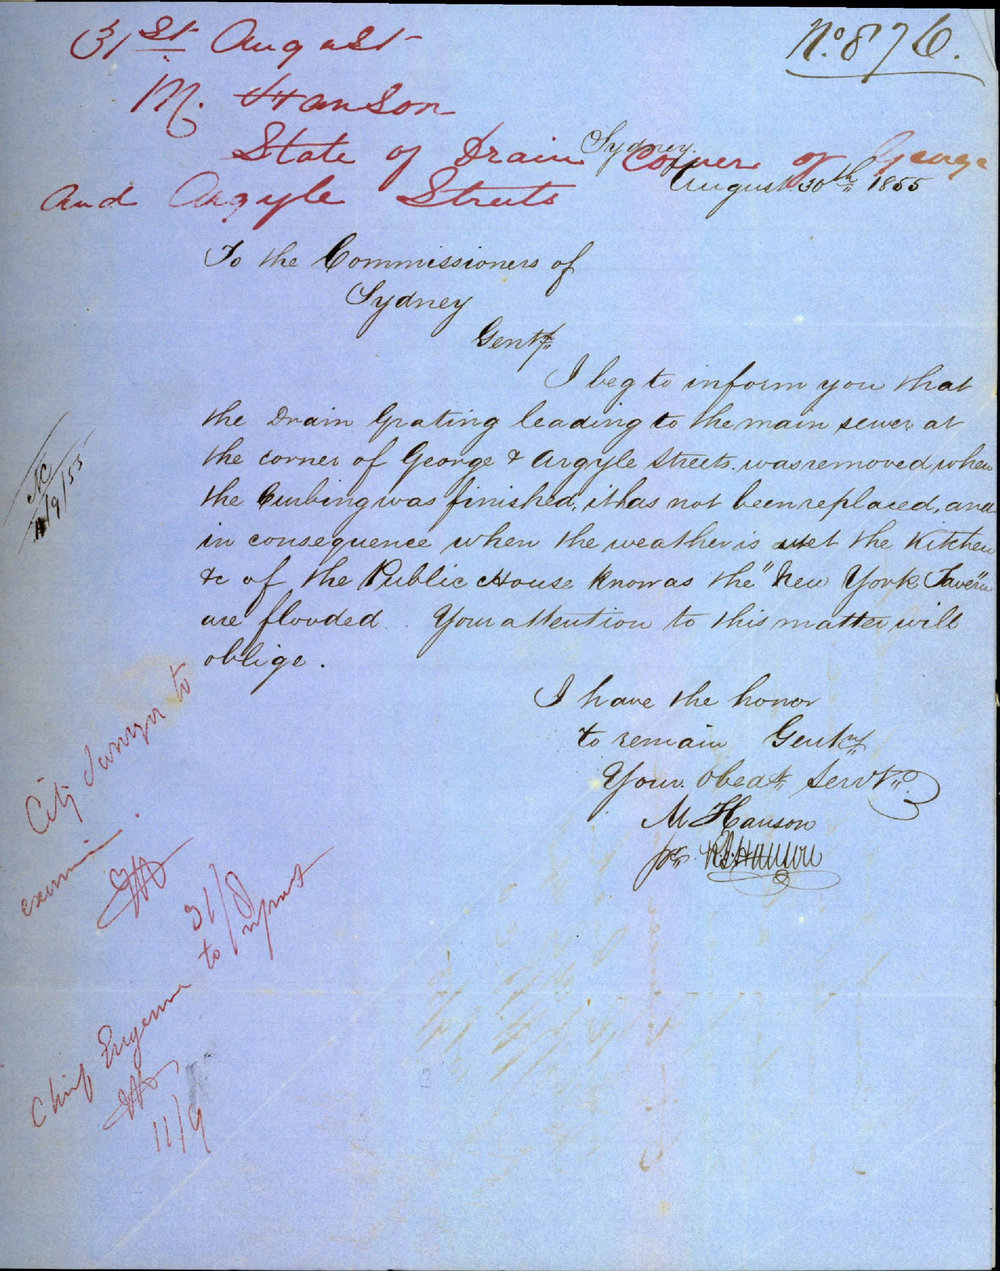 No. 876.
31st August
M. Hanson
State of Drain Corner of George
and Argyle Streets
Sydney.
August 30th 1855
To the Commissioners of
Sydney
Gentn
I beg to inform you that
the Drain Grating leading to the main sewer at
the corner of George & Argyle Streets. was removed when
the Curbing was finished, it has not been replaced, and
in consequence when the weather is wet the Kitchen
&c of the Public House known as the "New York Tavern"
are flooded. Your attention to this matter will
oblige.
I have the honor
to remain Gentn
Your Obedt Servt
M Hanson
pr. R. Hanson
/9/55
City Surveyor to
examine.
31/8
Chief Engineer to report
11/9